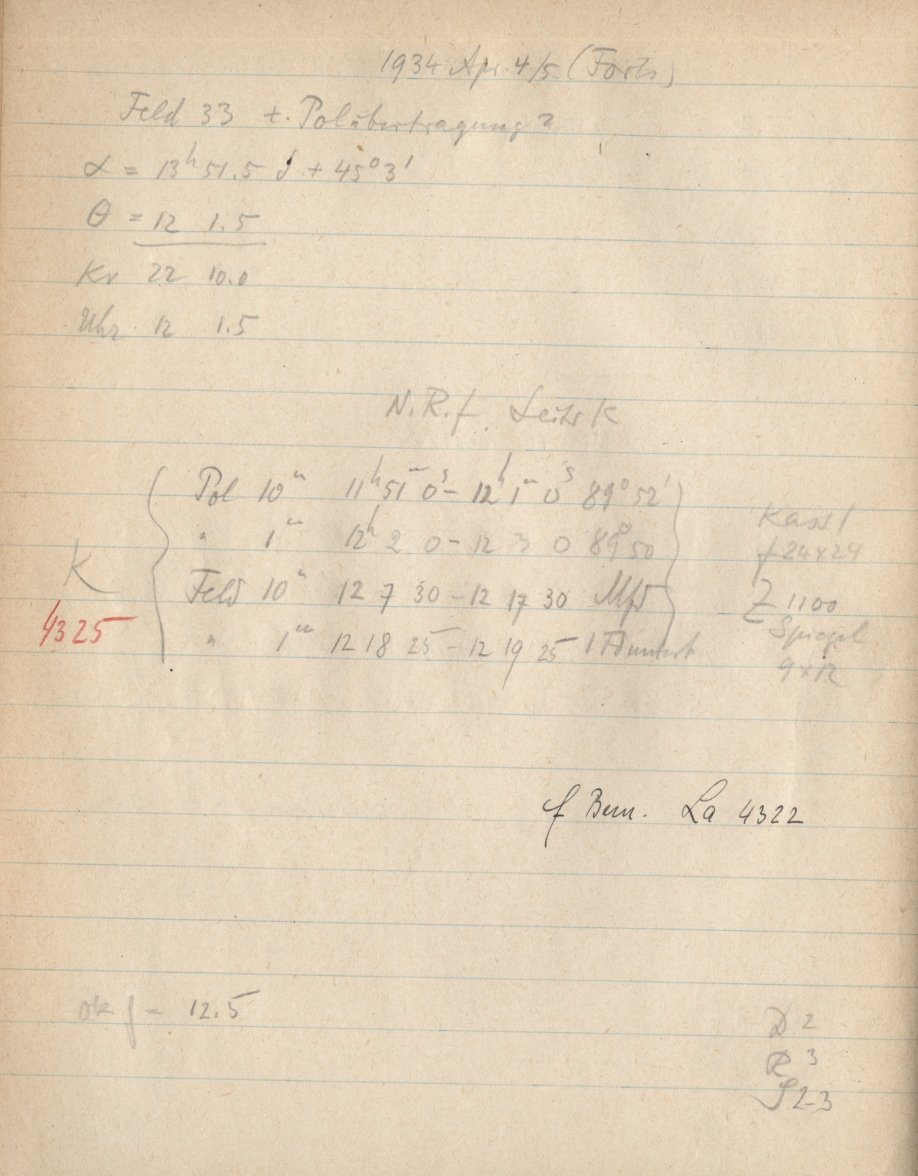 1934 Apr. 4/5 (Forts)
Feld 33 + Polübertragung 2
α = 13ʰ 51.5 δ + 45° 3'
θ = 12 1.5
Kr 22 10.0
Uhr 12 1.5
N.R.f. K
Pol 10ᵐ 11ʰ 51ᵐ 0ˢ – 12ʰ 1ᵐ 0ˢ 89° 52'
" 1ᵐ 12ʰ 2 0 – 12 3 0 89° 50
K
Feld 10ᵐ 12 7 30 – 12 17 30
4325
" 1ᵐ 12 18 25 – 12 19 25 1
Kass 1
f 24x24
Z 1100
Spiegel
9x12
f Bem. La 4322
f = 12.5
D 2
R 3
S 2-3